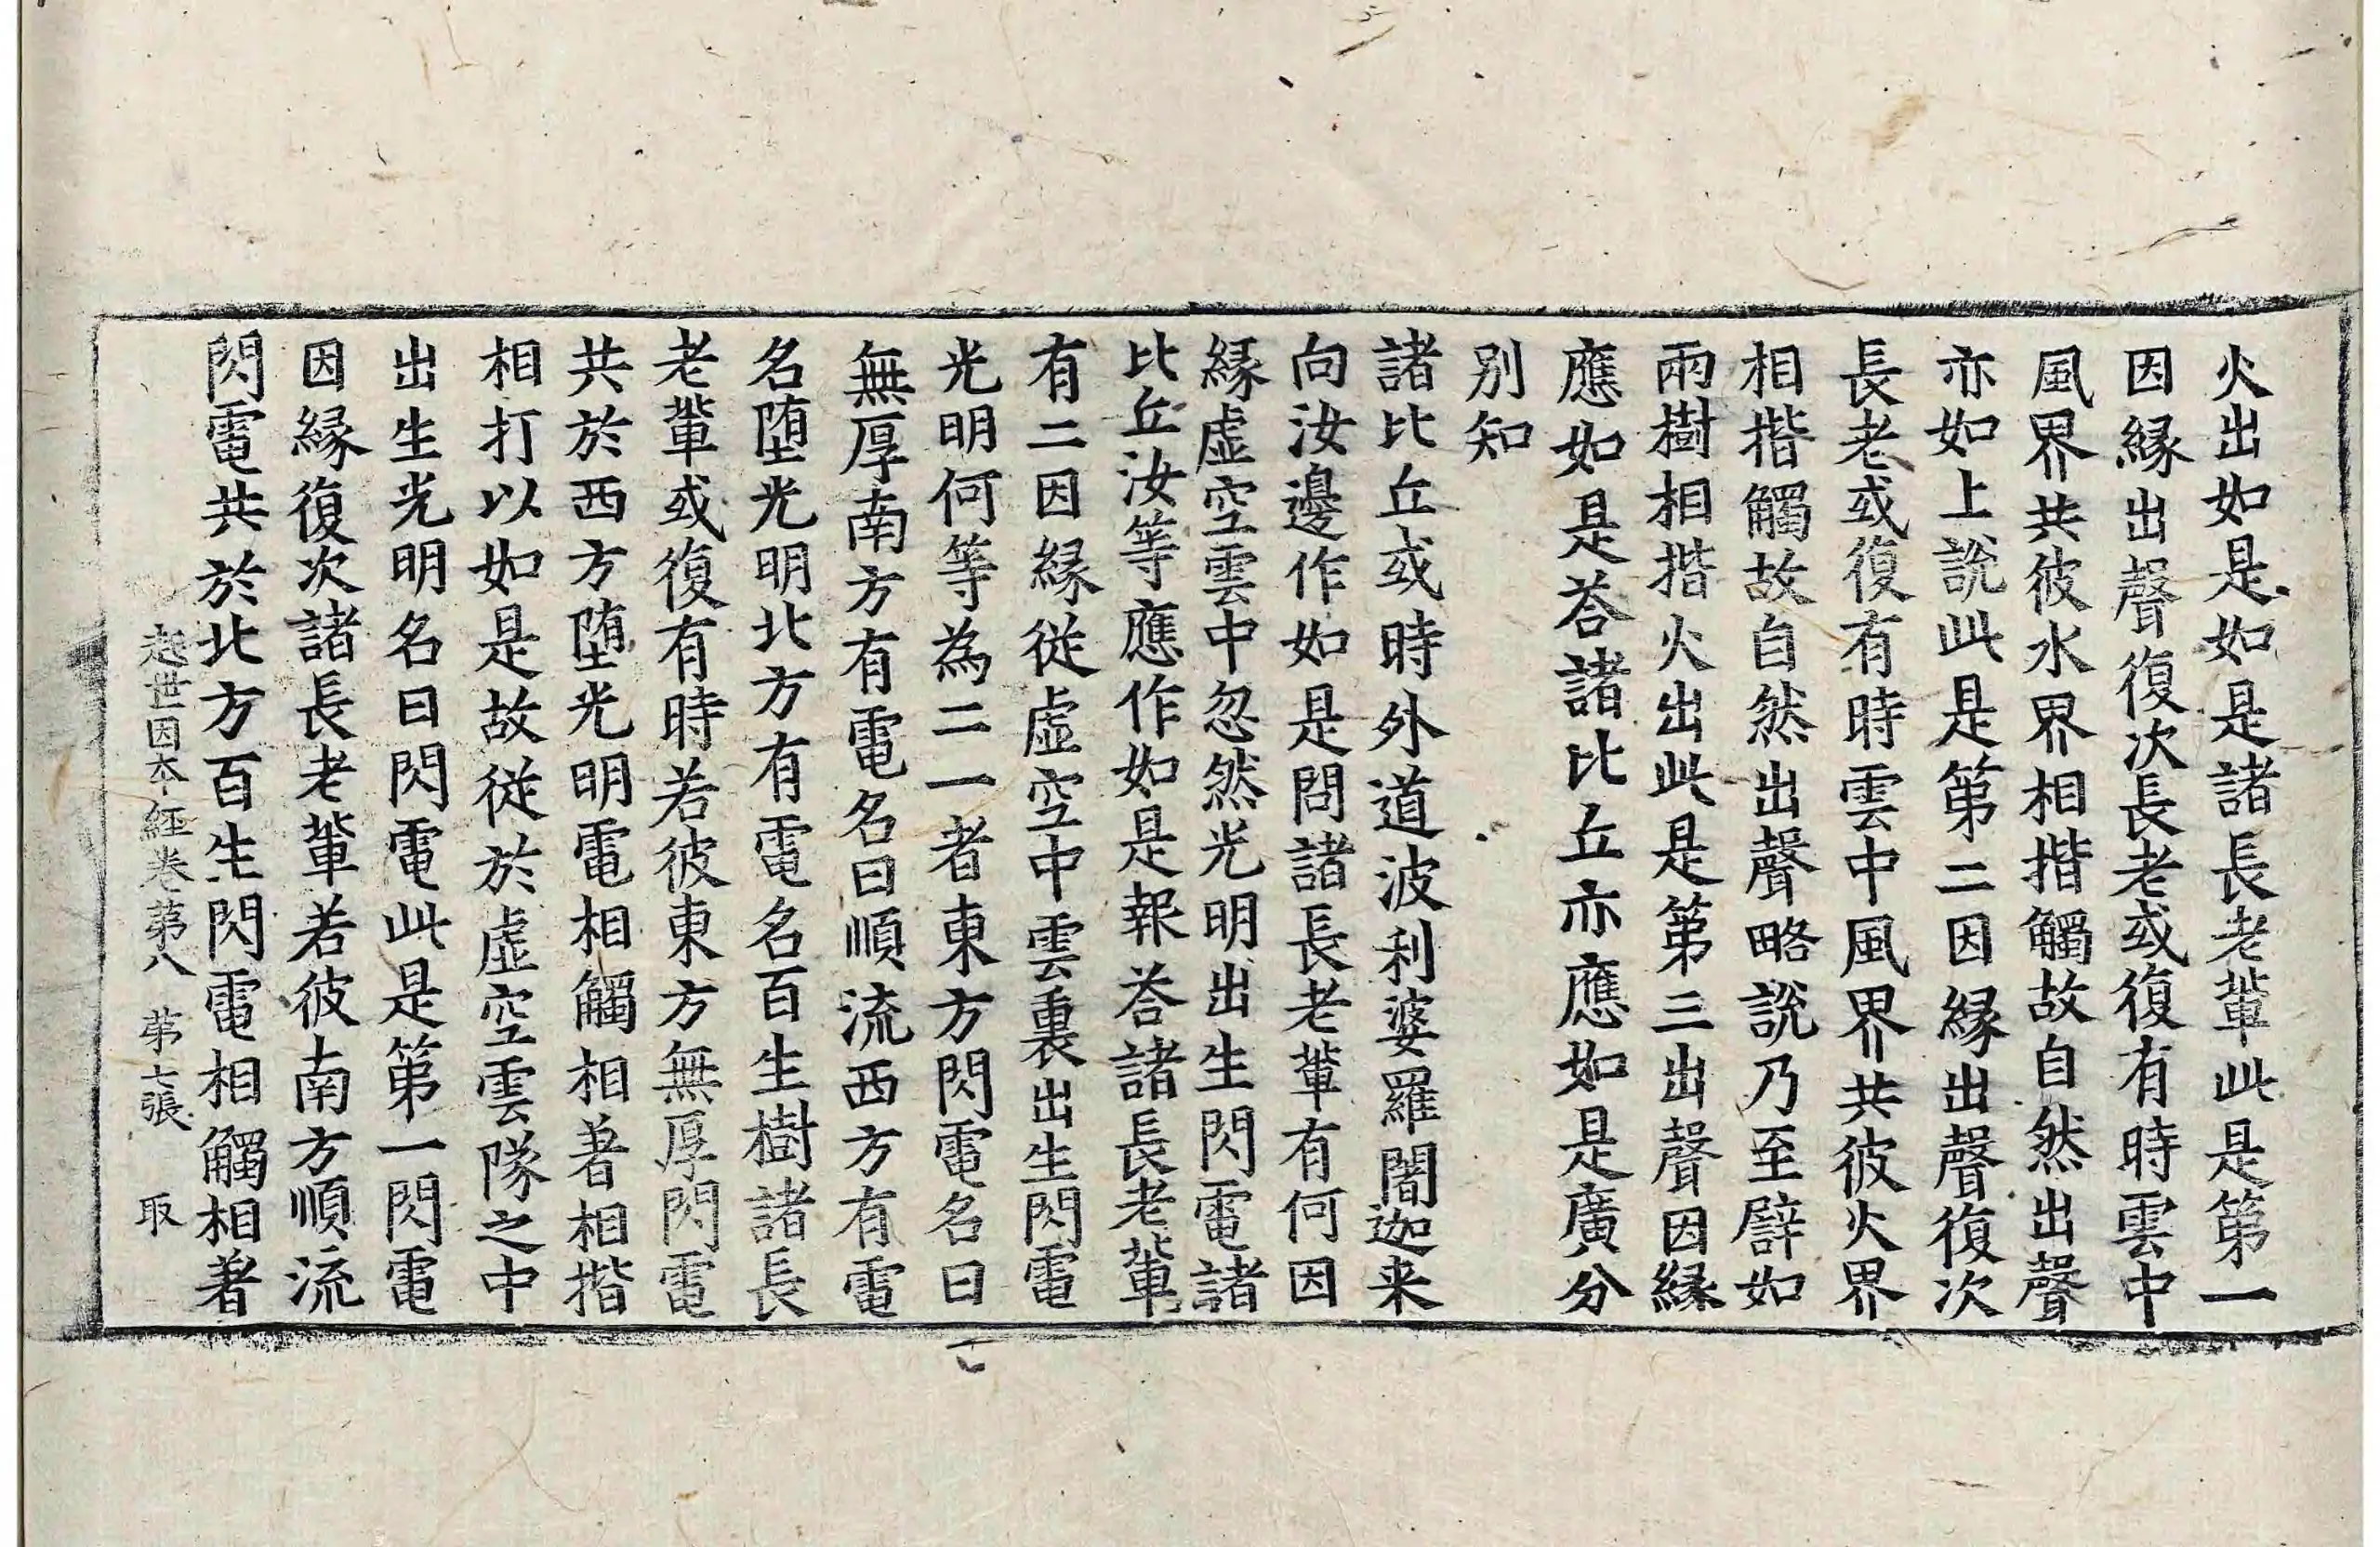 火出如是如是諸長老輩此是第一
因縁出聲復次長老或復有時雲中
風界共彼水界相揩觸故自然出聲
亦如上說此是第二因縁出聲復次
長老或復有時雲中風界共彼火界
相揩觸故自然出聲略說乃至譬如
兩樹相揩火出此是第三出聲因縁
應如是荅諸比丘亦應如是廣分
別知
諸比丘或時外道波利婆羅闍迦来
向汝邊作如是問諸長老輩有何因
縁虚空雲中忽然光明出生閃電諸
比丘汝等應作如是報荅諸長老輩
有二因縁從虚空中雲裏出生閃電
光明何等為二一者東方閃電名曰
無厚南方有電名曰順流西方有電
名堕光明北方有電名百生樹諸長
老輩或復有時若彼東方無厚閃電
共於西方堕光明電相觸相著相揩
相打以如是故從於虚空雲隊之中
出生光明名曰閃電此是第一閃電
因縁復次諸長老輩若彼南方順流
閃電共於北方百生閃電相觸相著
起世因本經卷第八 第七張 取